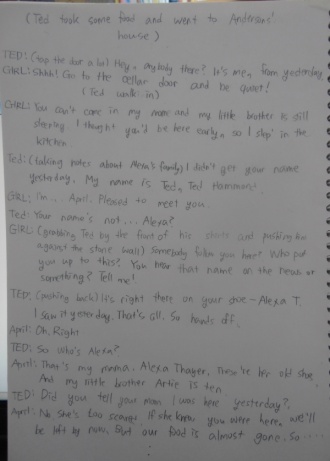 (Ted took some food and went to Andersons'
house)
TED: (Tap the door a lot) Hey, anybody there? It's me, from yesterday
GIRL: Shhh! Go to the cellar door and be quiet!
(Ted walk in)
GIRL: You can't come in my name and my little brother is still
sleeping. I thought you'd be here early, so I slep' in the
kitchen.
Ted: (taking notes about Alexa's family) I didn't get your name
yesterday. My name is Ted, Ted Hammond.
GIRL: I'm... April. Pleased to meet you.
Ted: Your name's not... Alexa?
GIRL: (grabbing Ted by the front of his shirt and pushing him
against the stone wall) Somebody follow you here? Who put
you up to this? You hear that name on the news or
something? Tell me!
TED: (pushing back) It's right there on your shoe - Alexa T.
I saw it yesterday. That's all. So hands off.
April: Oh, Right
TED: So who's Alexa?
April: That's my mama. Alexa Thayer. These're her old shoe
And my little brother Artie is ten.
TED: Did you tell your mom I was here yesterday?
April: No She's too scared. If she knew you were here, we'll
be left by now. But our food is almost gone. So....